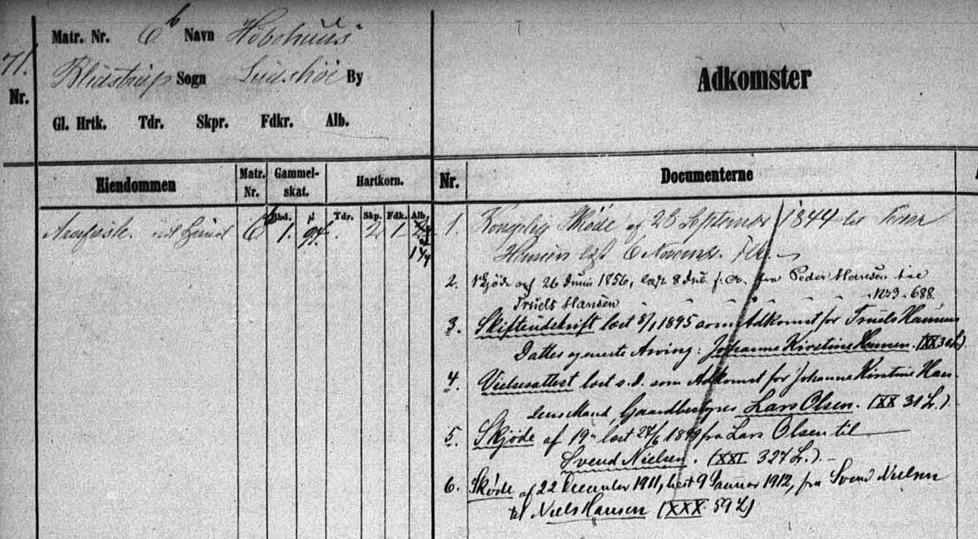 71.
Nr.
Matr. Nr. 6b Navn
Blidstrup Sogn By
Gl. Hrtk. Tdr. Skpr. Fdkr. Alb.
Adkomster
Eiendommen
Matr. Nr.
Gammel-skat.
Hartkorn.
Nr.
Documenterne
Rbd. Tdr. Skp. Fdk. Alb.
6b 1. 94. 2 1
1. Kongelig Skjøde af 28 September 1844 til
Hansen læst 6 November
2. Skjøde af 26 Juni 1856, læst 8 fra Peder Hansen til
Truels Hansen N23 - 688.
3. Skifteudskrift læst 8/1 1895 som Adkomst for Truels Hansens
Datter og eneste Arving: Johanne Kirstine Hansen. (XX 30 L.)
4. Vielsesattest læst s.d. som Adkomst for Johanne Kirstine Han-
sens Mand, Gaardbestyrer Lars Olsen. (XX 31 L.)
5. Skjøde af 19de læst 27/6 1899 fra Lars Olsen til
Svend Nielsen. (XXI 327 L.)
6. Skøde af 22 December 1911, læst 9 Januar 1912, fra Svend Nielsen
til Niels Hansen (XXX 59 L)